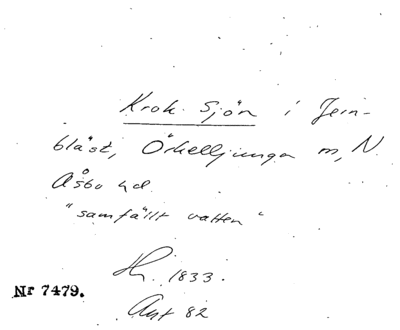 Krok sjön i Jern-
bläst, Örkelljunga m, N.
Åsbo hd
"samfällt vatten"
1833.
Nr 7479.
Akt 82